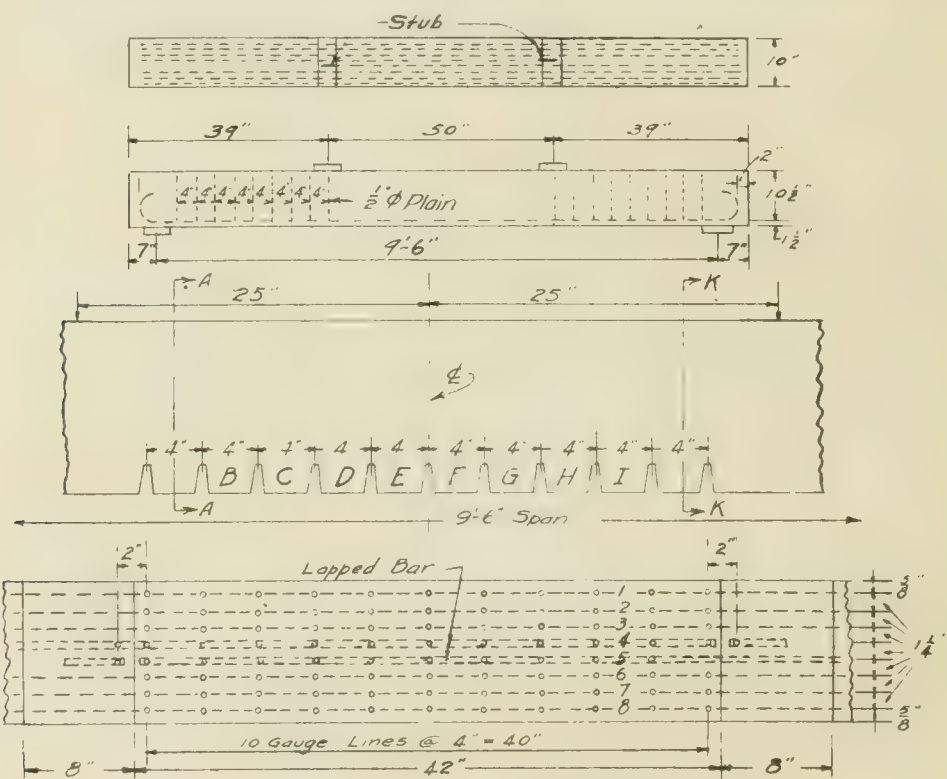 Stub
10"
39" 50" 39"
2"
4" 4" 4" 4" 4" 4" 4" 4"
½" ϕ Plain
10½"
1½"
7" 9'-6" 7"
A K
25" 25"
℄
4" 4" 4" 4 4 4" 4" 4" 4" 4"
B C D E F G H I
A K
9'-6" Span
2" 2"
Lapped Bar
1
2
3
4
5
6
7
8
5/8"
1¼"
5/8"
10 Gauge Lines @ 4" = 40"
8" 42" 8"